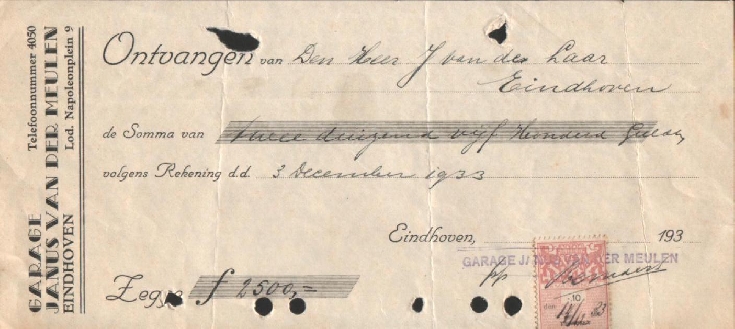 GARAGE
JANUS VAN DER MEULEN
EINDHOVEN
Telefoonnummer 4050
Lod. Napoleonplein 9
Ontvangen van Den Heer J van der Laar
Eindhoven
de Somma van twee duizend vijf Honderd Gulden
volgens Rekening d.d. 3 December 1933
Eindhoven, 193
GARAGE VAN DER MEULEN
pp
Zegge f 2500,=
10
den